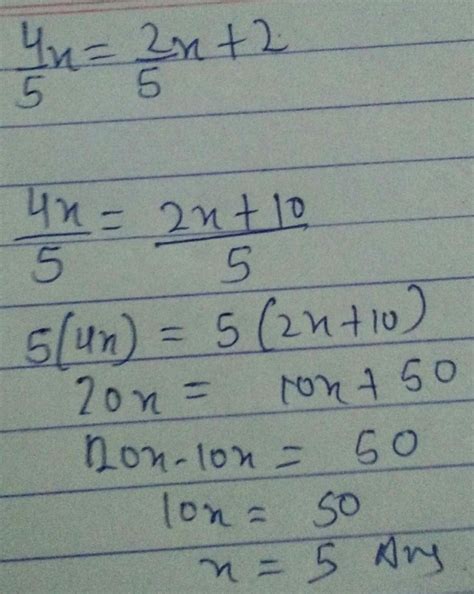 4/5 x = 2/5 x + 2
4x/5 = (2x + 10)/5
5(4x) = 5(2x+10)
20x = 10x + 50
20x - 10x = 50
10x = 50
x = 5 Ans